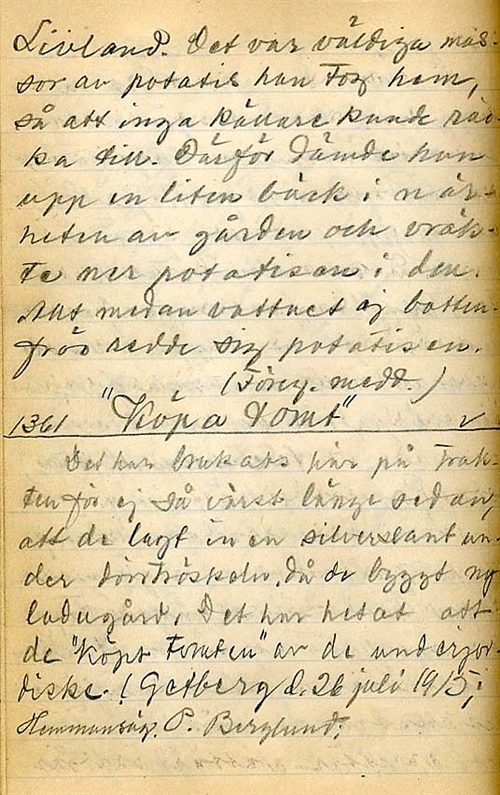 Livland. Det var väldiga mas-
sor av potatis han tog hem,
så att inga källare kunde räc-
ka till. Därför dämde han
upp en liten bäck i när-
heten av gården och vräk-
te ner potatisen i den.
Allt medan vattnet ej botten-
frös redde sig potatisen.
(Föreg. medd.)
1361 "Köpa tomt" v
Det har brukats här på trak-
ten för ej så värst länge sedan,
att de lagt in en silverslant un-
der dörrtröskeln, då de byggt ny
ladugård. Det har hetat att
de "köpt tomten" av de underjor-
diske. (Getberg d. 26 juli 1915;
Hemmansäg. P. Berglund.